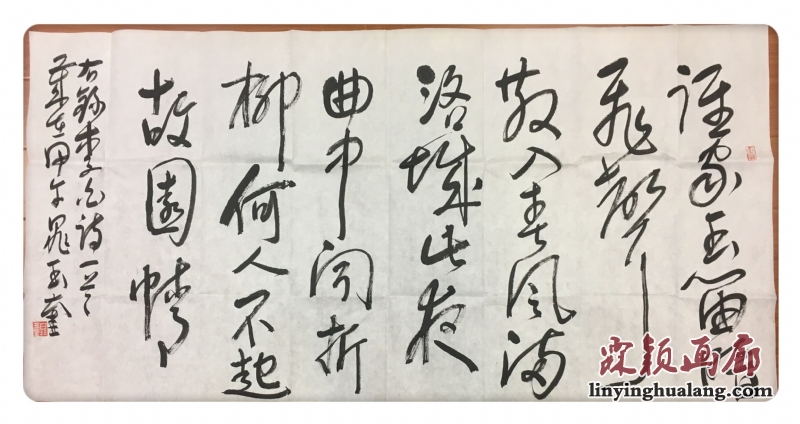 谁家玉笛暗
飞声
散入春风满
洛城此夜
曲中闻折
柳何人不起
故园情
右录李白诗一首
岁在甲午晁玉奎
霖颖画廊
linyinghualang.com